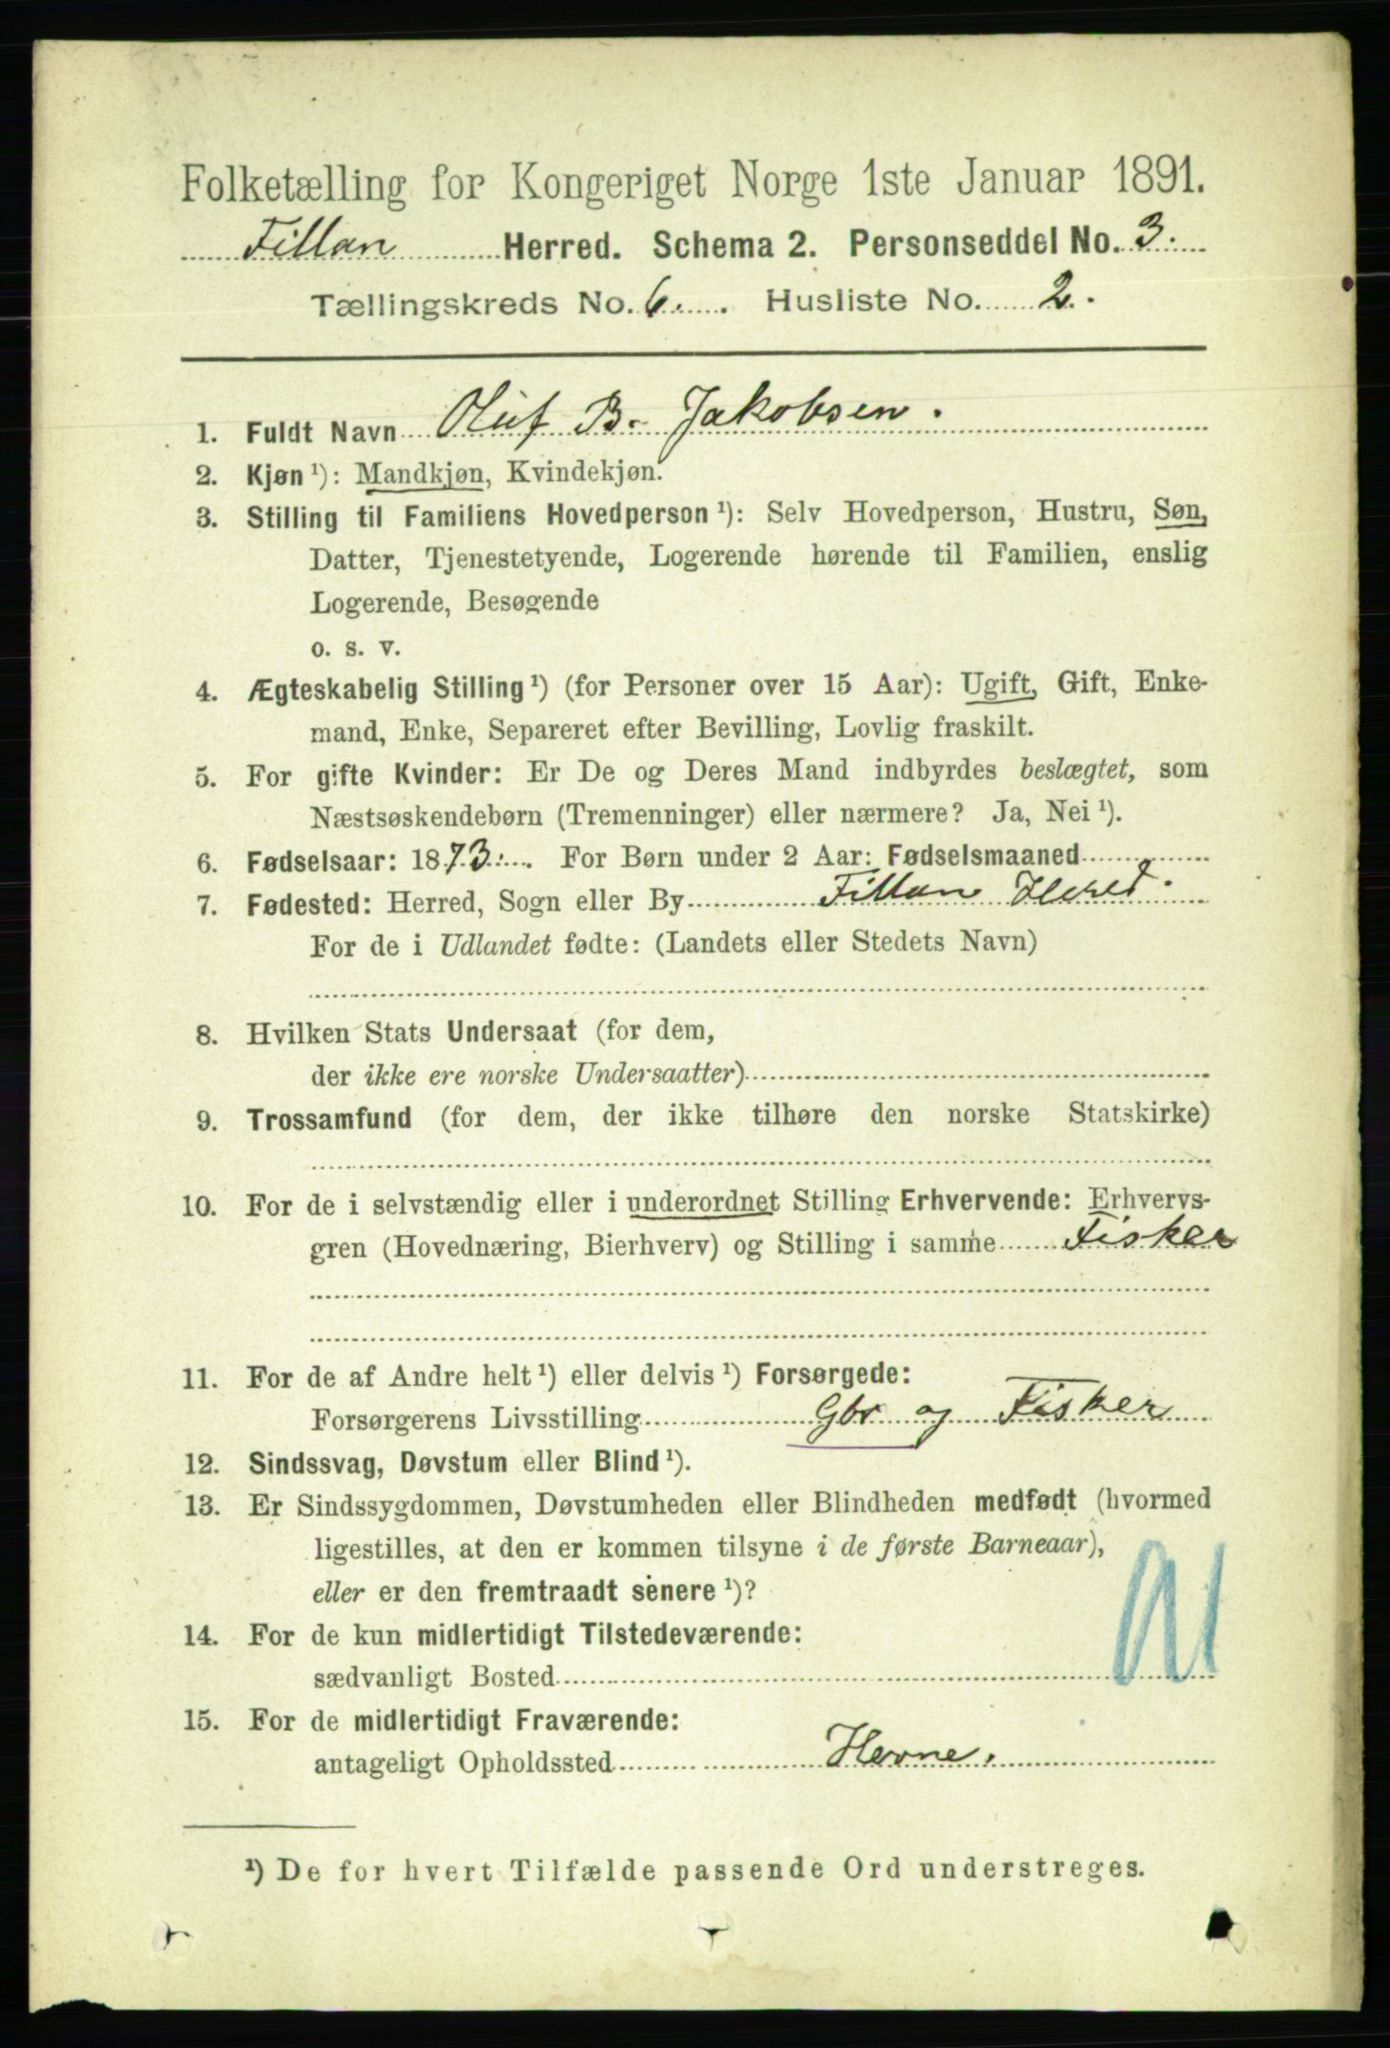 Folketælling for Kongeriget Norge 1ste Januar 1891.
Fillan Herred. Schema 2. Personseddel No. 3.
Tællingskreds No. 6. Husliste No. 2.
1. Fuldt Navn Oluf B. Jakobsen.
2. Kjøn ¹): Mandkjøn, Kvindekjøn.
3. Stilling til Familiens Hovedperson ¹): Selv Hovedperson, Hustru, Søn,
Datter, Tjenestetyende, Logerende hørende til Familien, enslig
Logerende, Besøgende
o. s. v.
4. Ægteskabelig Stilling ¹) (for Personer over 15 Aar): Ugift, Gift, Enke-
mand, Enke, Separeret efter Bevilling, Lovlig fraskilt.
5. For gifte Kvinder: Er De og Deres Mand indbyrdes beslægtet, som
Næstsøskendebørn (Tremenninger) eller nærmere? Ja, Nei ¹).
6. Fødselsaar: 1873. For Børn under 2 Aar: Fødselsmaaned
7. Fødested: Herred, Sogn eller By Fillan Hered.
For de i Udlandet fødte: (Landets eller Stedets Navn)
8. Hvilken Stats Undersaat (for dem,
der ikke ere norske Undersaatter)
9. Trossamfund (for dem, der ikke tilhøre den norske Statskirke)
10. For de i selvstændig eller i underordnet Stilling Erhvervende: Erhvervs-
gren (Hovednæring, Bierhverv) og Stilling i samme Fisker
11. For de af Andre helt ¹) eller delvis ¹) Forsørgede:
Forsørgerens Livsstilling Gbr og Fisker
12. Sindssvag, Døvstum eller Blind ¹).
13. Er Sindssygdommen, Døvstumheden eller Blindheden medfødt (hvormed
ligestilles, at den er kommen tilsyne i de første Barneaar),
eller er den fremtraadt senere ¹)?
14. For de kun midlertidigt Tilstedeværende:
sædvanligt Bosted
15. For de midlertidigt Fraværende:
antageligt Opholdssted Hevne.
¹) De for hvert Tilfælde passende Ord understreges.